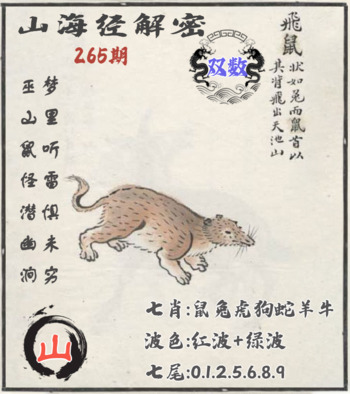 山海经解密
265期
双数
飛鼠
状如兔而鼠首以
其背飛出天池山
梦里听雷惧未穷
巫山鼠怪潜幽洞
山
七肖:鼠兔虎狗蛇羊牛
波色:红波+绿波
七尾:0.1.2.5.6.8.9